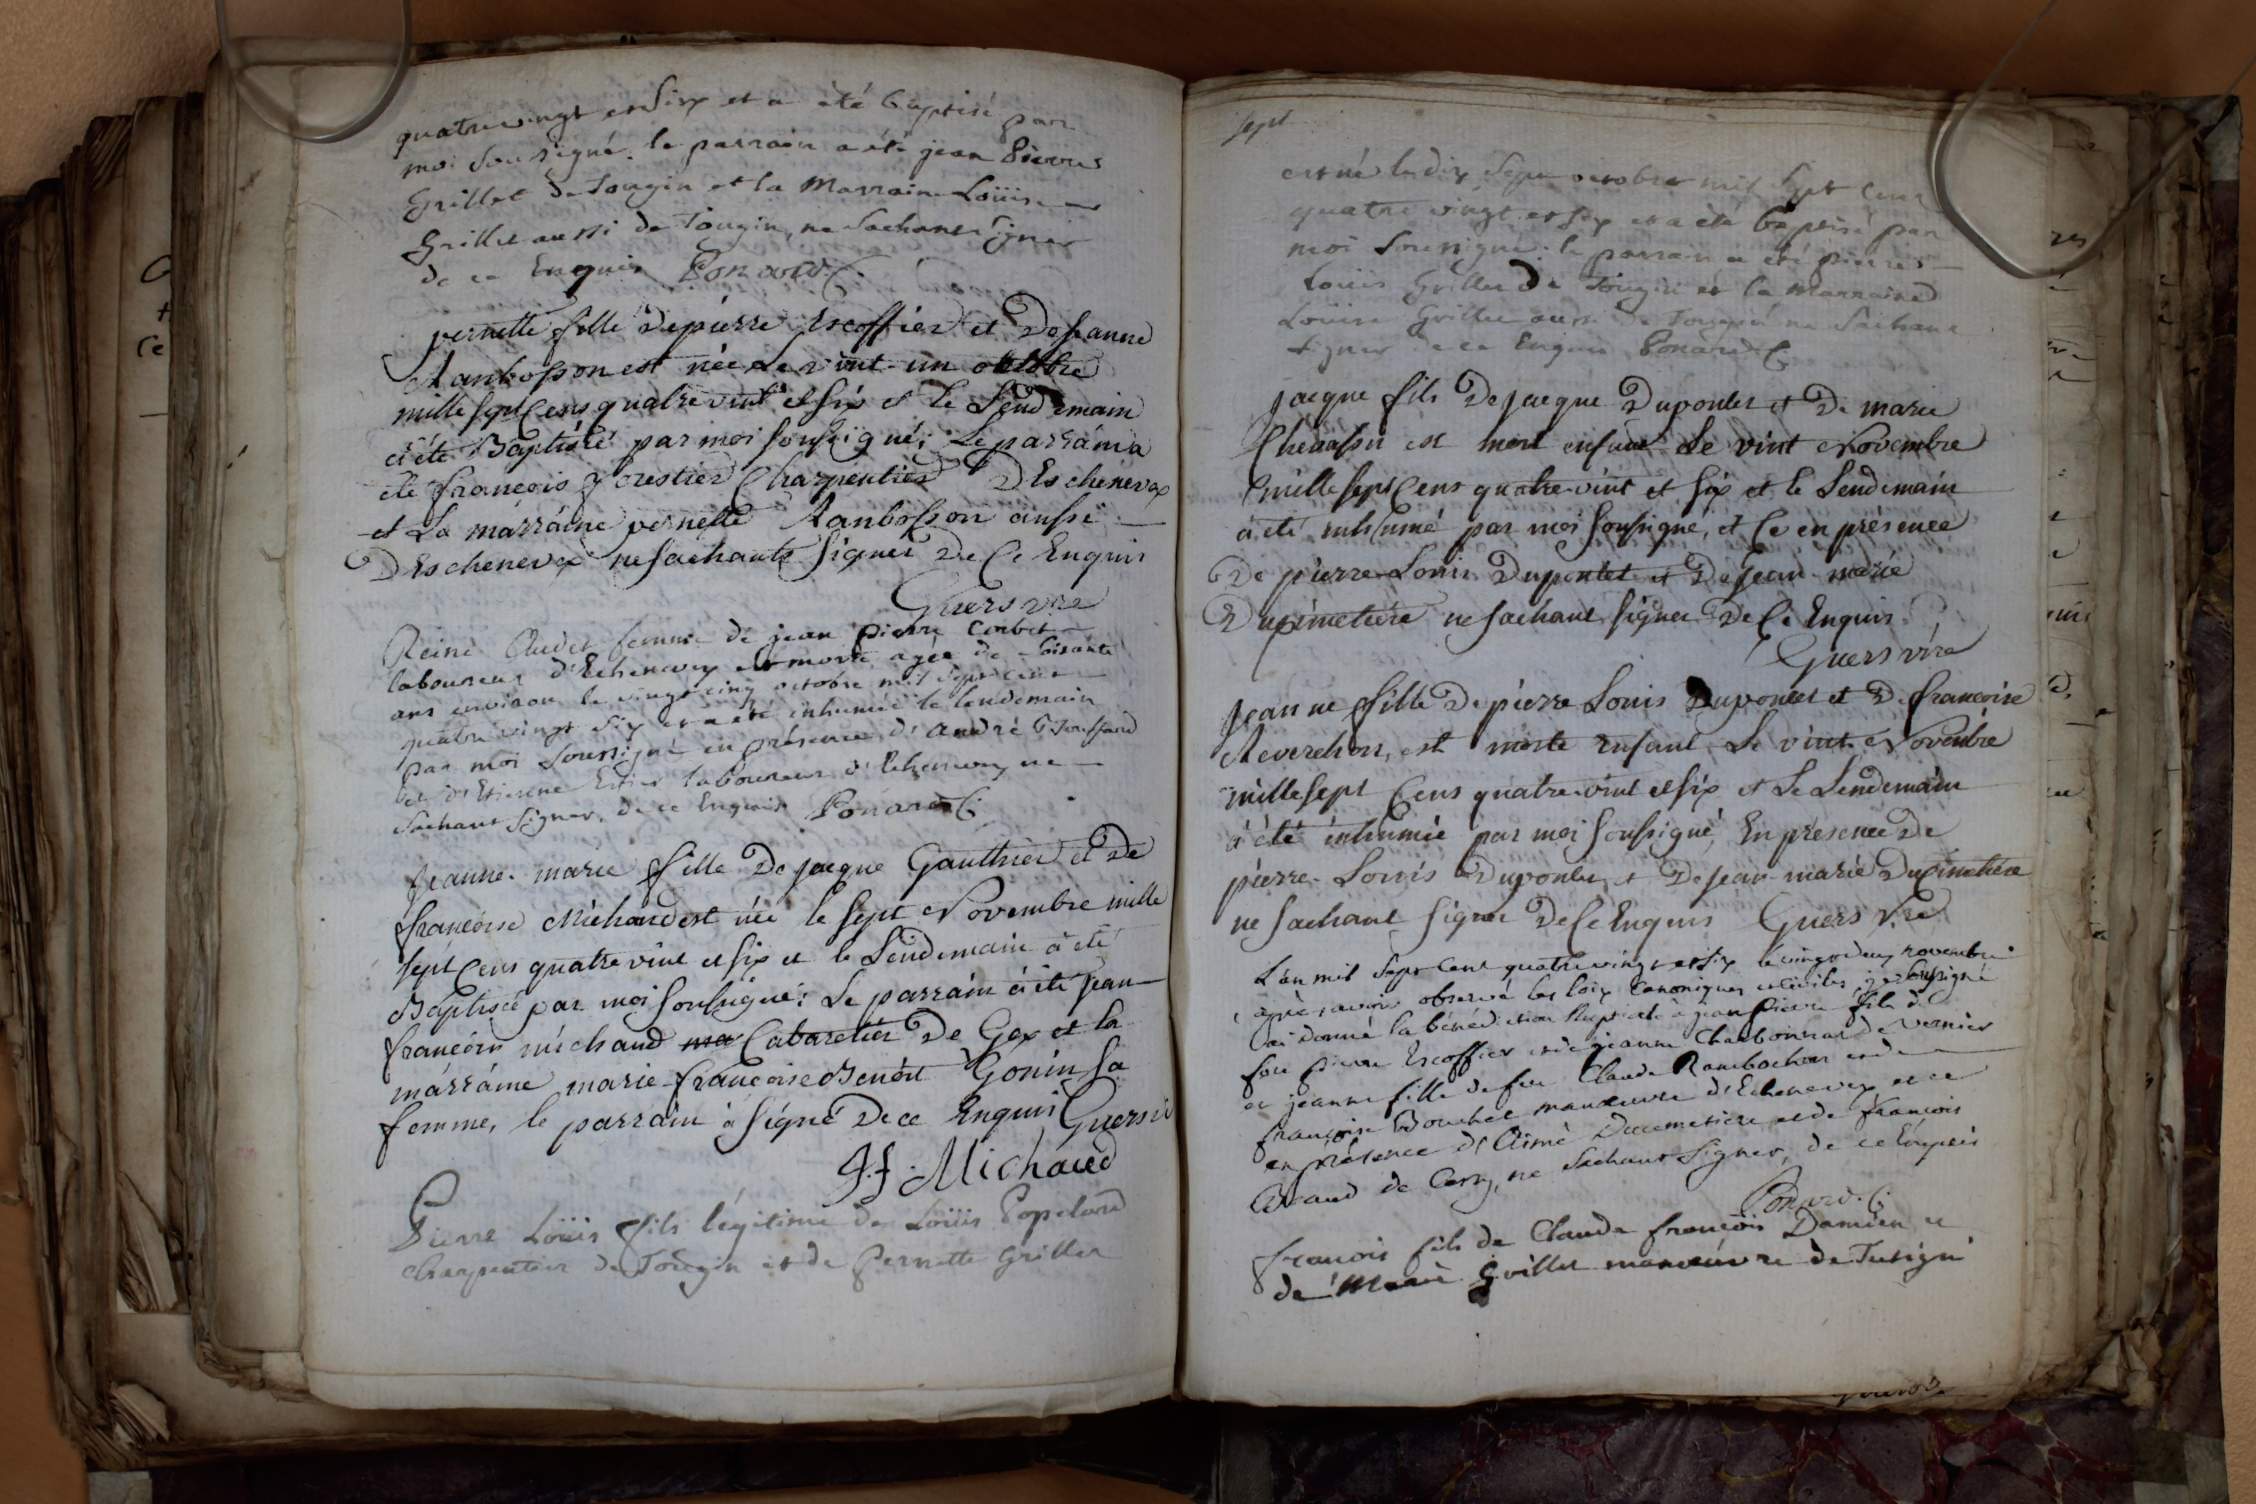 quatre vingt et Six et a été baptisé par
moi Soussigné. le parrain a été jean Pierre
Grillet de Tougin et la Marraine Loüise
Grillet aussi de Tougin, ne Sachant Signer
de ce Enquis Ponard C.
pernette fille De pierre Escoffier et De Jeanne
Ranbosson est née Le vint-un octobre
mille sept Cens quatre vint et six et le Lendemain
a été Baptisée par moi soussigné; Le parrain a
été françois forestier Charpentier D'Eschenevex
et La marraine pernette Ranbosson aussi
D'Eschenevex ne sachants signer De Ce Enquis
Guers vre
Reine Chudet femme de jean pierre Corbet
laboureur d'Echenevex est morte agée de Soisante
ans environ le vingt cinq octobre mil Sept cent
quatre vingt Six et a été inhumée le lendemain
par moi Soussigné en présence d'André
et d'Etienne laboureur d'Echenevex ne
Sachant Signer, de ce Enquis Ponard C.
Jeanne-marie fille De jacque Gauthier et De
françoise Michaud est née le sept Novembre mille
sept Cens quatre vint et six et le Lendemain à été
Baptisée par moi soussigné: Le parrain à été jean
françois michaud ma Cabaretier De Gex et la
marraine marie-françoise Benoit Gonin sa
femme, le parrain à signé De ce Enquis Guers v
J.f. Michaud
Pierre Loüis fils légitime de Loüis Popelard
Charpentier de Tougin et de Pernette Grillet
sept
est né le dix Sept octobre mil Sept Cent
quatre vingt et Six et a été baptisé par
moi Soussigné: le parrain a été pierre
Loüis Grillet De Tougin et la Marraine
Loüise Grillet aussi de Tougin ne Sachant
Signer de ce Enquis Ponard C.
Jacque fils De jacque Dupontet et De marie
est mort enfant Le vint Novembre
mille sept Cens quatre-vint et six et le Lendemain
à été inhumé par moi soussigné, et Ce en présence
De pierre-Louis Dupontet et De jean-marie
Ducimetière ne sachant signer De Ce Enquis
Guers vire
Jeanne fille De pierre Louis Dupontet et De françoise
Reverchon, est morte Enfant Le vint Novembre
mille sept Cens quatre-vint et six et Le Lendemain
à été inhumée par moi soussigné, En presence De
pierre-Louis Dupontet et De jean-marie Ducimetière
ne sachant signer De Ce Enquis Guers Vre
L'an mil Sept Cent quatre vingt et Six le vingt deux novembre
après avoir observé les loix Canoniques et Civiles, je Soussigné
ai donné la bénédiction Nuptiale à jean Pierre fils de
feu Pierre Escoffier et de jeanne Charbonnar de Vernier
et jeanne fille de feu Claude Rambochon et de
françoise Bouchet manœuvre d'Echenevex et ce
en présence d'Aimé Ducimetiere et de françois
de Cessy, ne Sachant Signer, de ce Enquis
Ponard. C.
françois fils de Claude françois Damien et
de Marie Grillet manœuvre de Tutigni